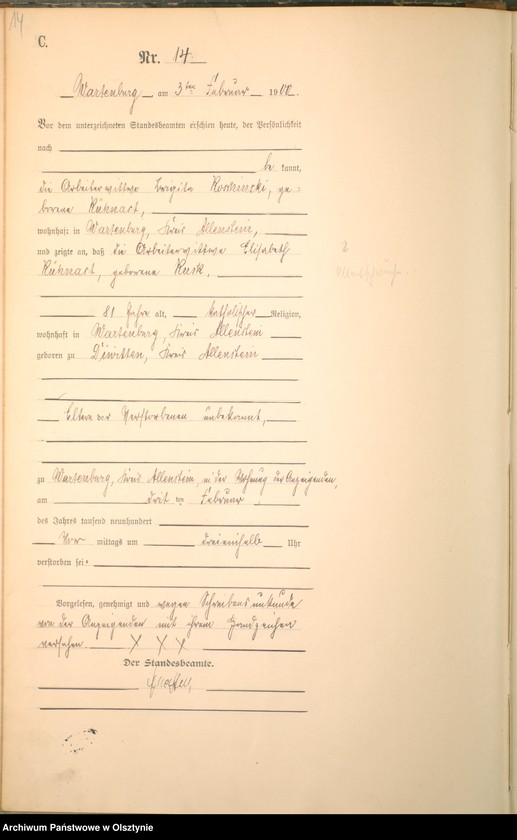 14
C.
Nr. 14
Wartenburg am 3ten Februar 1900.
Vor dem unterzeichneten Standesbeamten erschien heute, der Persönlichkeit
nach
be kannt,
die Arbeiterwittwe Brigita ge-
borene Kühnast,
wohnhaft in Wartenburg, Kreis Allenstein,
und zeigte an, daß die Arbeiterwittwe Elisabeth
Kühnast, geborene
81 Jahre alt, katholischer Religion,
wohnhaft in Wartenburg, Kreis Allenstein
geboren zu Diwitten, Kreis Allenstein
Eltern der Verstorbenen unbekannt,
zu Wartenburg, Kreis Allenstein, in der Wohnung der Anzeigenden,
am drit ten Februar
des Jahres tausend neunhundert
Vor mittags um Uhr
verstorben sei.
Vorgelesen, genehmigt und wegen Schreibensunkunde
von der Anzeigenden mit ihrem Handzeichen
versehen. X X X
Der Standesbeamte.
Archiwum Państwowe w Olsztynie